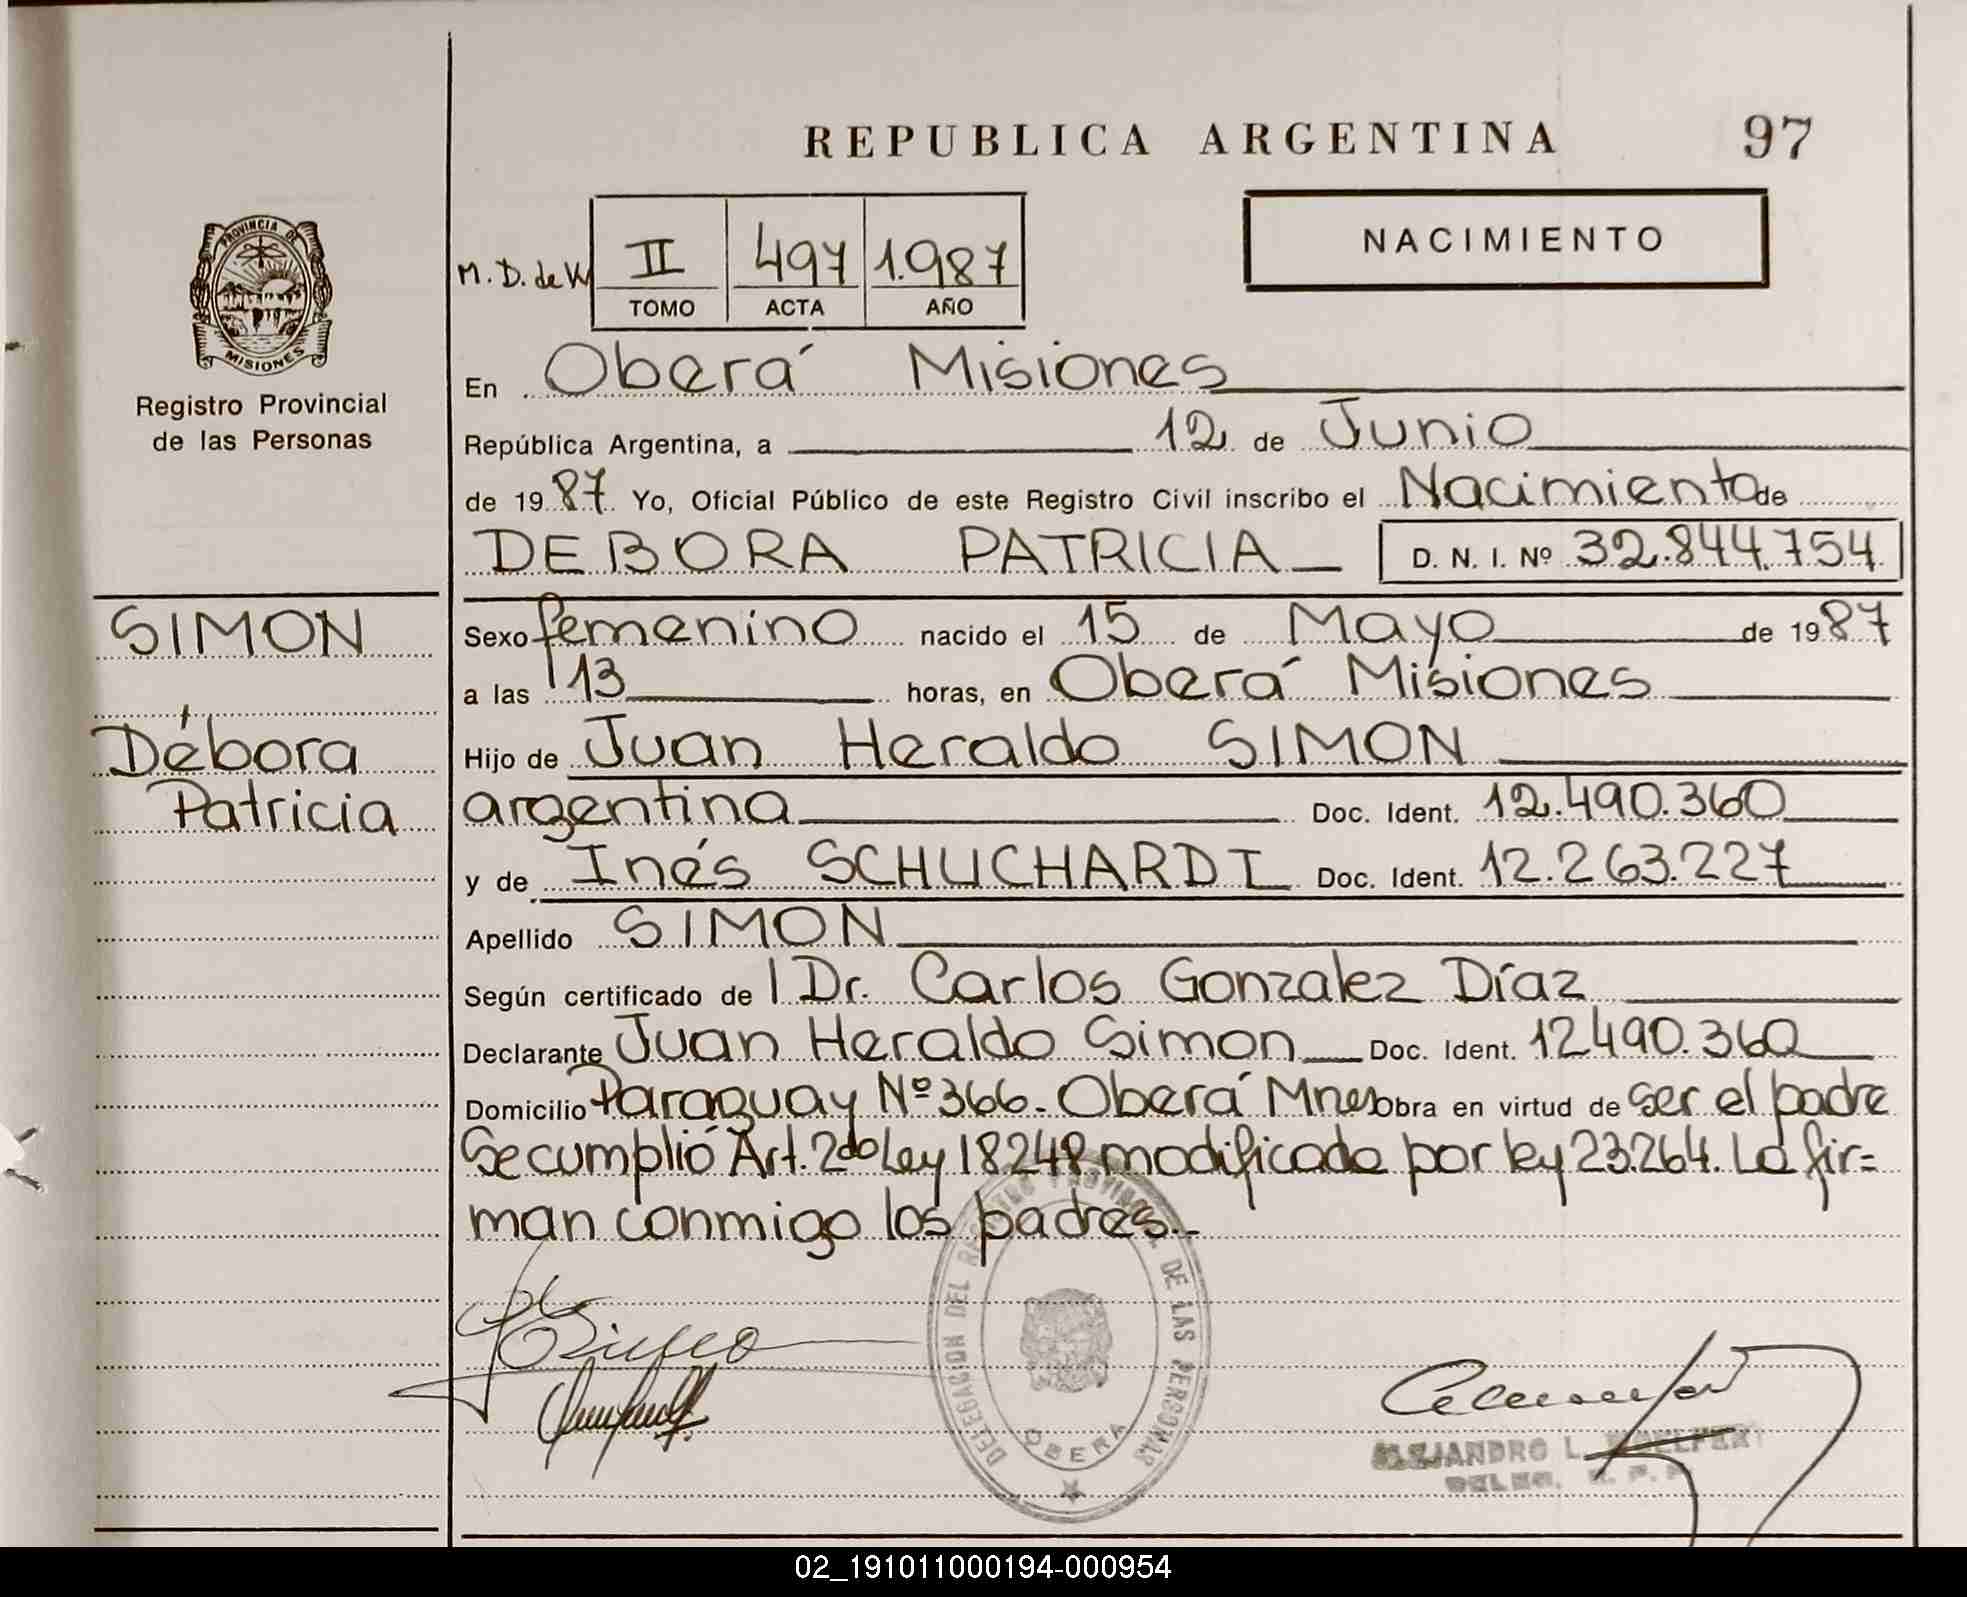 REPUBLICA ARGENTINA 97
PROVINCIA DE
MISIONES
Registro Provincial
de las Personas
NACIMIENTO
M. D. de W
II 497 1.987
TOMO ACTA AÑO
En Oberá Misiones
República Argentina, a 12 de Junio
de 1987 Yo, Oficial Público de este Registro Civil inscribo el Nacimiento de
DEBORA PATRICIA D. N. I. Nº 32.844.754
SIMON
Débora
Patricia
Sexo femenino nacido el 15 de Mayo de 1987
a las 13 horas, en Oberá Misiones
Hijo de Juan Heraldo SIMON
argentina Doc. Ident. 12.490.360
y de Inés SCHUCHARDT Doc. Ident. 12.263.227
Apellido SIMON
Según certificado de Dr. Carlos Gonzalez Díaz
Declarante Juan Heraldo Simon Doc. Ident. 12490.360
Domicilio Paraguay Nº 366. Oberá Mnes Obra en virtud de ser el padre
Se cumplió Art. 2do Ley 18248 modificada por ley 23.264. La fir=
man conmigo los padres.-
DELEGACION DEL REGISTRO PROVINCIAL DE LAS PERSONAS
OBERA
ALEJANDRO L.
DELEG. R. P. P.
02_191011000194-000954